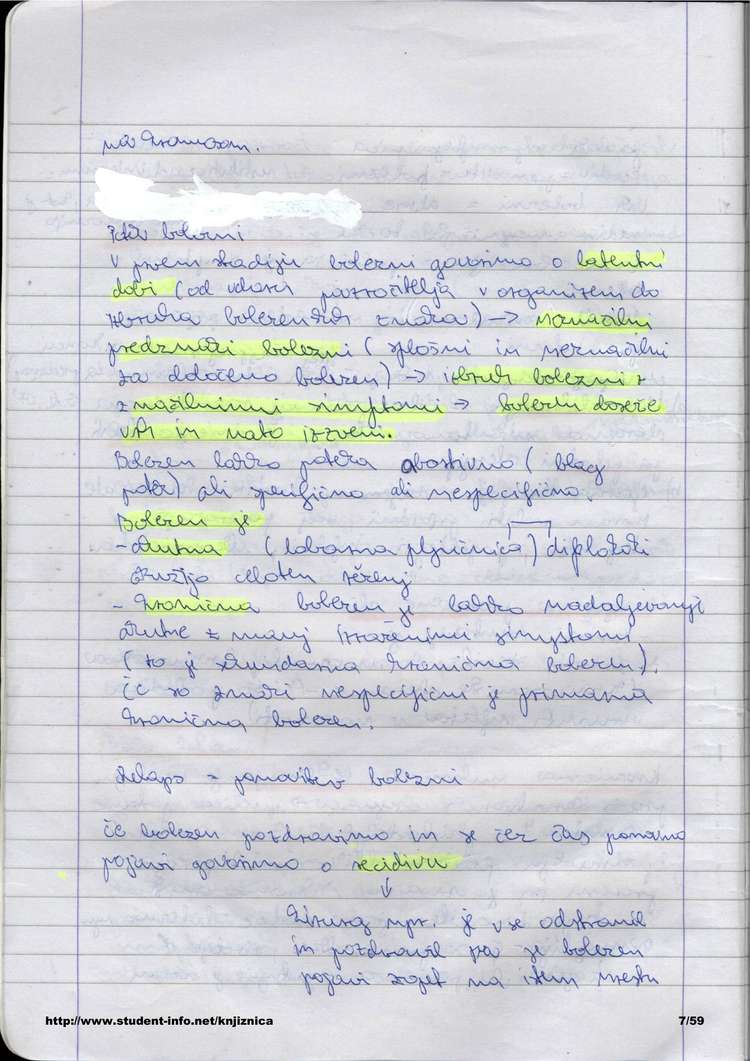 na kromosom.
Potek bolezni
V prvem stadiju bolezni govorimo o latentni
dobi (od vdora povzročitelja v organizem do
izbruha bolezenskih znakov) → neznačilni
predznaki bolezni (splošni in neznačilni
za določeno bolezen) → izbruh bolezni +
z značilnimi simptomi → bolezen doseže
vrh in nato izzveni.
Bolezen lahko poteka abortivno (blag
potek) ali specifično ali nespecifično.
Bolezen je
- akutna (lobarna pljučnica) diplokoki
okužijo celoten reženj
- kronična bolezen je lahko nadaljevanje
akutne z manj izraženimi simptomi
(to je sekundarna kronična bolezen).
če so znaki nespecifični je primarna
kronična bolezen.
Relaps = ponovitev bolezni
če bolezen pozdravimo in se čez čas ponovno
pojavi govorimo o recidivu
↓
Kirurg npr. je vse odstranil
in pozdravil pa se bolezen
pojavi zopet na istem mestu
http://www.student-info.net/knjiznica 7/59